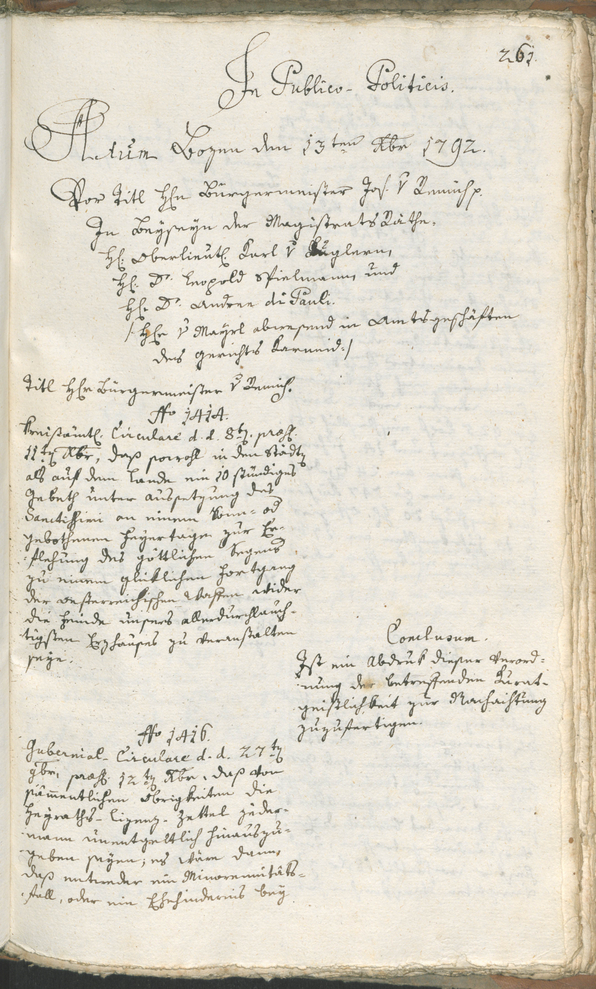 261.
In Publico-Politicis.
Actum Bozen den 13ten Xbr 1792.
Vor Titl Hhn Bürgermeister Jos. v Remich p.
In Beyseyn der Magistrats Räthe.
H: Oberlieut: Karl v
H: Dr. Leopold Spielmann, und
H: Dr. Andree di Pauli.
/: Hhr v Mayrl abwesend in Amtsgeschäften
des Gerichts Karneid :/
Titl Hhr Bürgermeister v Remich.
No 1414.
Kreisämtl. Circulare d. d. 8t, pras.
11ten Xbr, daß sowohl in den Städtn
als auf dem Lande ein 10 stündiges
Gebeth unter Aussetzung des
Sanctissimi an einem Sonn- od
gebothenen Feyertagen zur Er-
flehung des göttlichen Segens
zu einem glücklichen Fortgang
der oesterreichischen Waffen wider
die Feinde unsers allerdurchlauch-
tigsten Erzhauses zu veranstalten
seye.
Conclusum.
Ist ein Abdruk dieser Verord-
nung der betreffenden Kurat-
geistlichkeit zur Nachachtung
zuzufertigen.
No 1416.
Gubernial-Circulare d. d. 27ten
9br, pras. 12ten Xbr, daß von
sämentlichen Obrigkeiten die
Heyraths-Lizenz-Zettel jeder-
mann unentgeltlich hinauszu-
geben seyen; es wäre dann,
daß entweder ein Minorennitäts-
fall, oder ein Ehehindernis bey